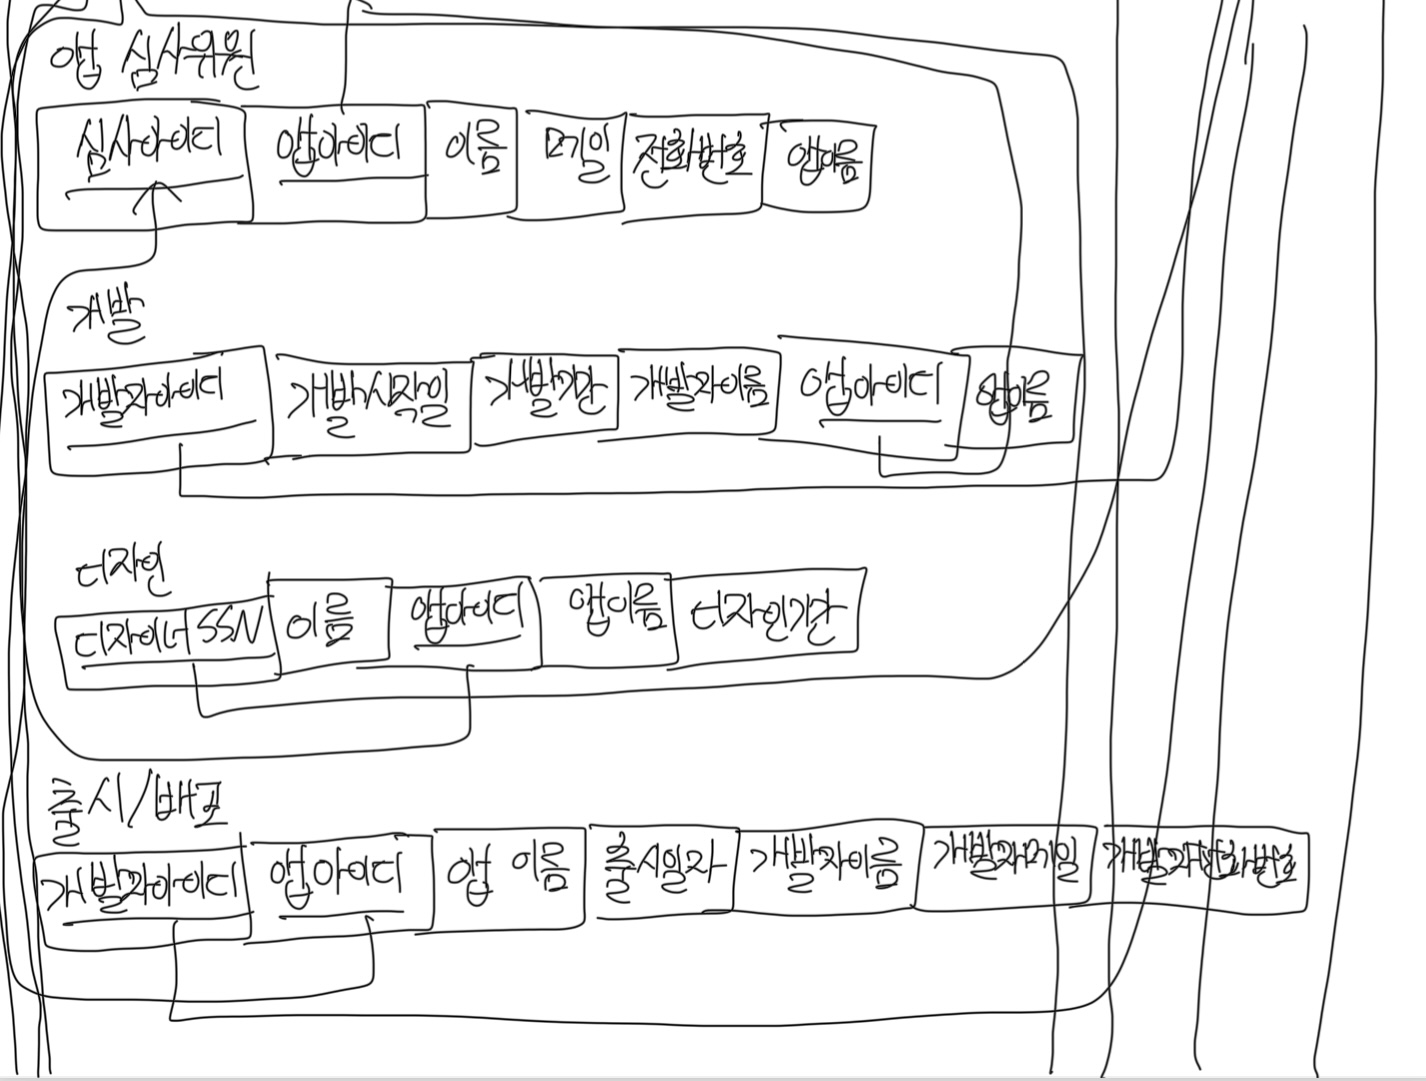 앱 심사위원
심사아이디 앱아이디 이름 메일 전화번호 앱이름
개발
개발자아이디 개발시작일 개발기간 개발자이름 앱아이디 앱이름
디자인
디자이너SSN 이름 앱아이디 앱이름 디자인기간
출시/배포
개발자아이디 앱아이디 앱 이름 출시일자 개발자이름 개발자메일 개발자전화번호